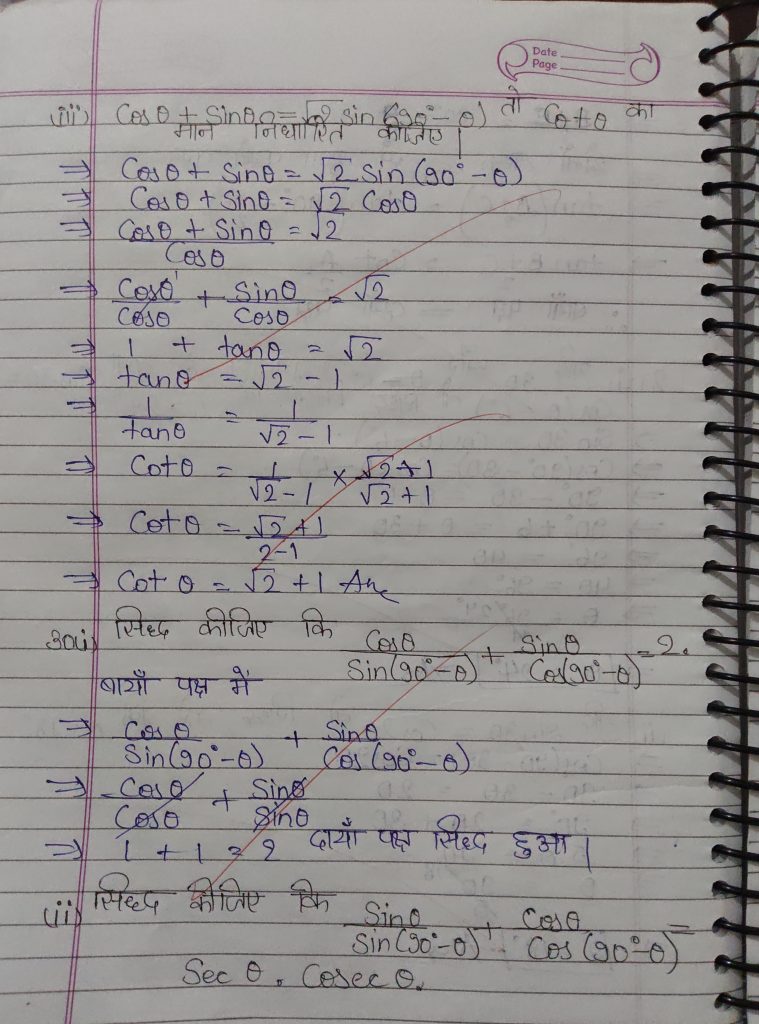 Date
Page
(iii) Cosθ + Sinθ = √2 Sin (90° - θ) तो Cotθ का
मान निर्धारित कीजिए।
⇒ Cosθ + Sinθ = √2 Sin (90° - θ)
⇒ Cosθ + Sinθ = √2 Cosθ
⇒ Cosθ + Sinθ / Cosθ = √2
⇒ Cosθ / Cosθ + Sinθ / Cosθ = √2
⇒ 1 + tanθ = √2
⇒ tanθ = √2 - 1
⇒ 1 / tanθ = 1 / √2 - 1
⇒ Cotθ = 1 / √2 - 1 × √2 + 1 / √2 + 1
⇒ Cotθ = √2 + 1 / 2 - 1
⇒ Cotθ = √2 + 1 Ans
30(i) सिध्द कीजिए कि Cosθ / Sin(90° - θ) + Sinθ / Cos(90° - θ) = 2.
बायाँ पक्ष में
⇒ Cosθ / Sin(90° - θ) + Sinθ / Cos (90° - θ)
⇒ Cosθ / Cosθ + Sinθ / Sinθ
⇒ 1 + 1 = 2 दायाँ पक्ष सिध्द हुआ।
(ii) सिध्द कीजिए कि Sinθ / Sin(90° - θ) + Cosθ / Cos (90° - θ) =
Sec θ . Cosec θ.